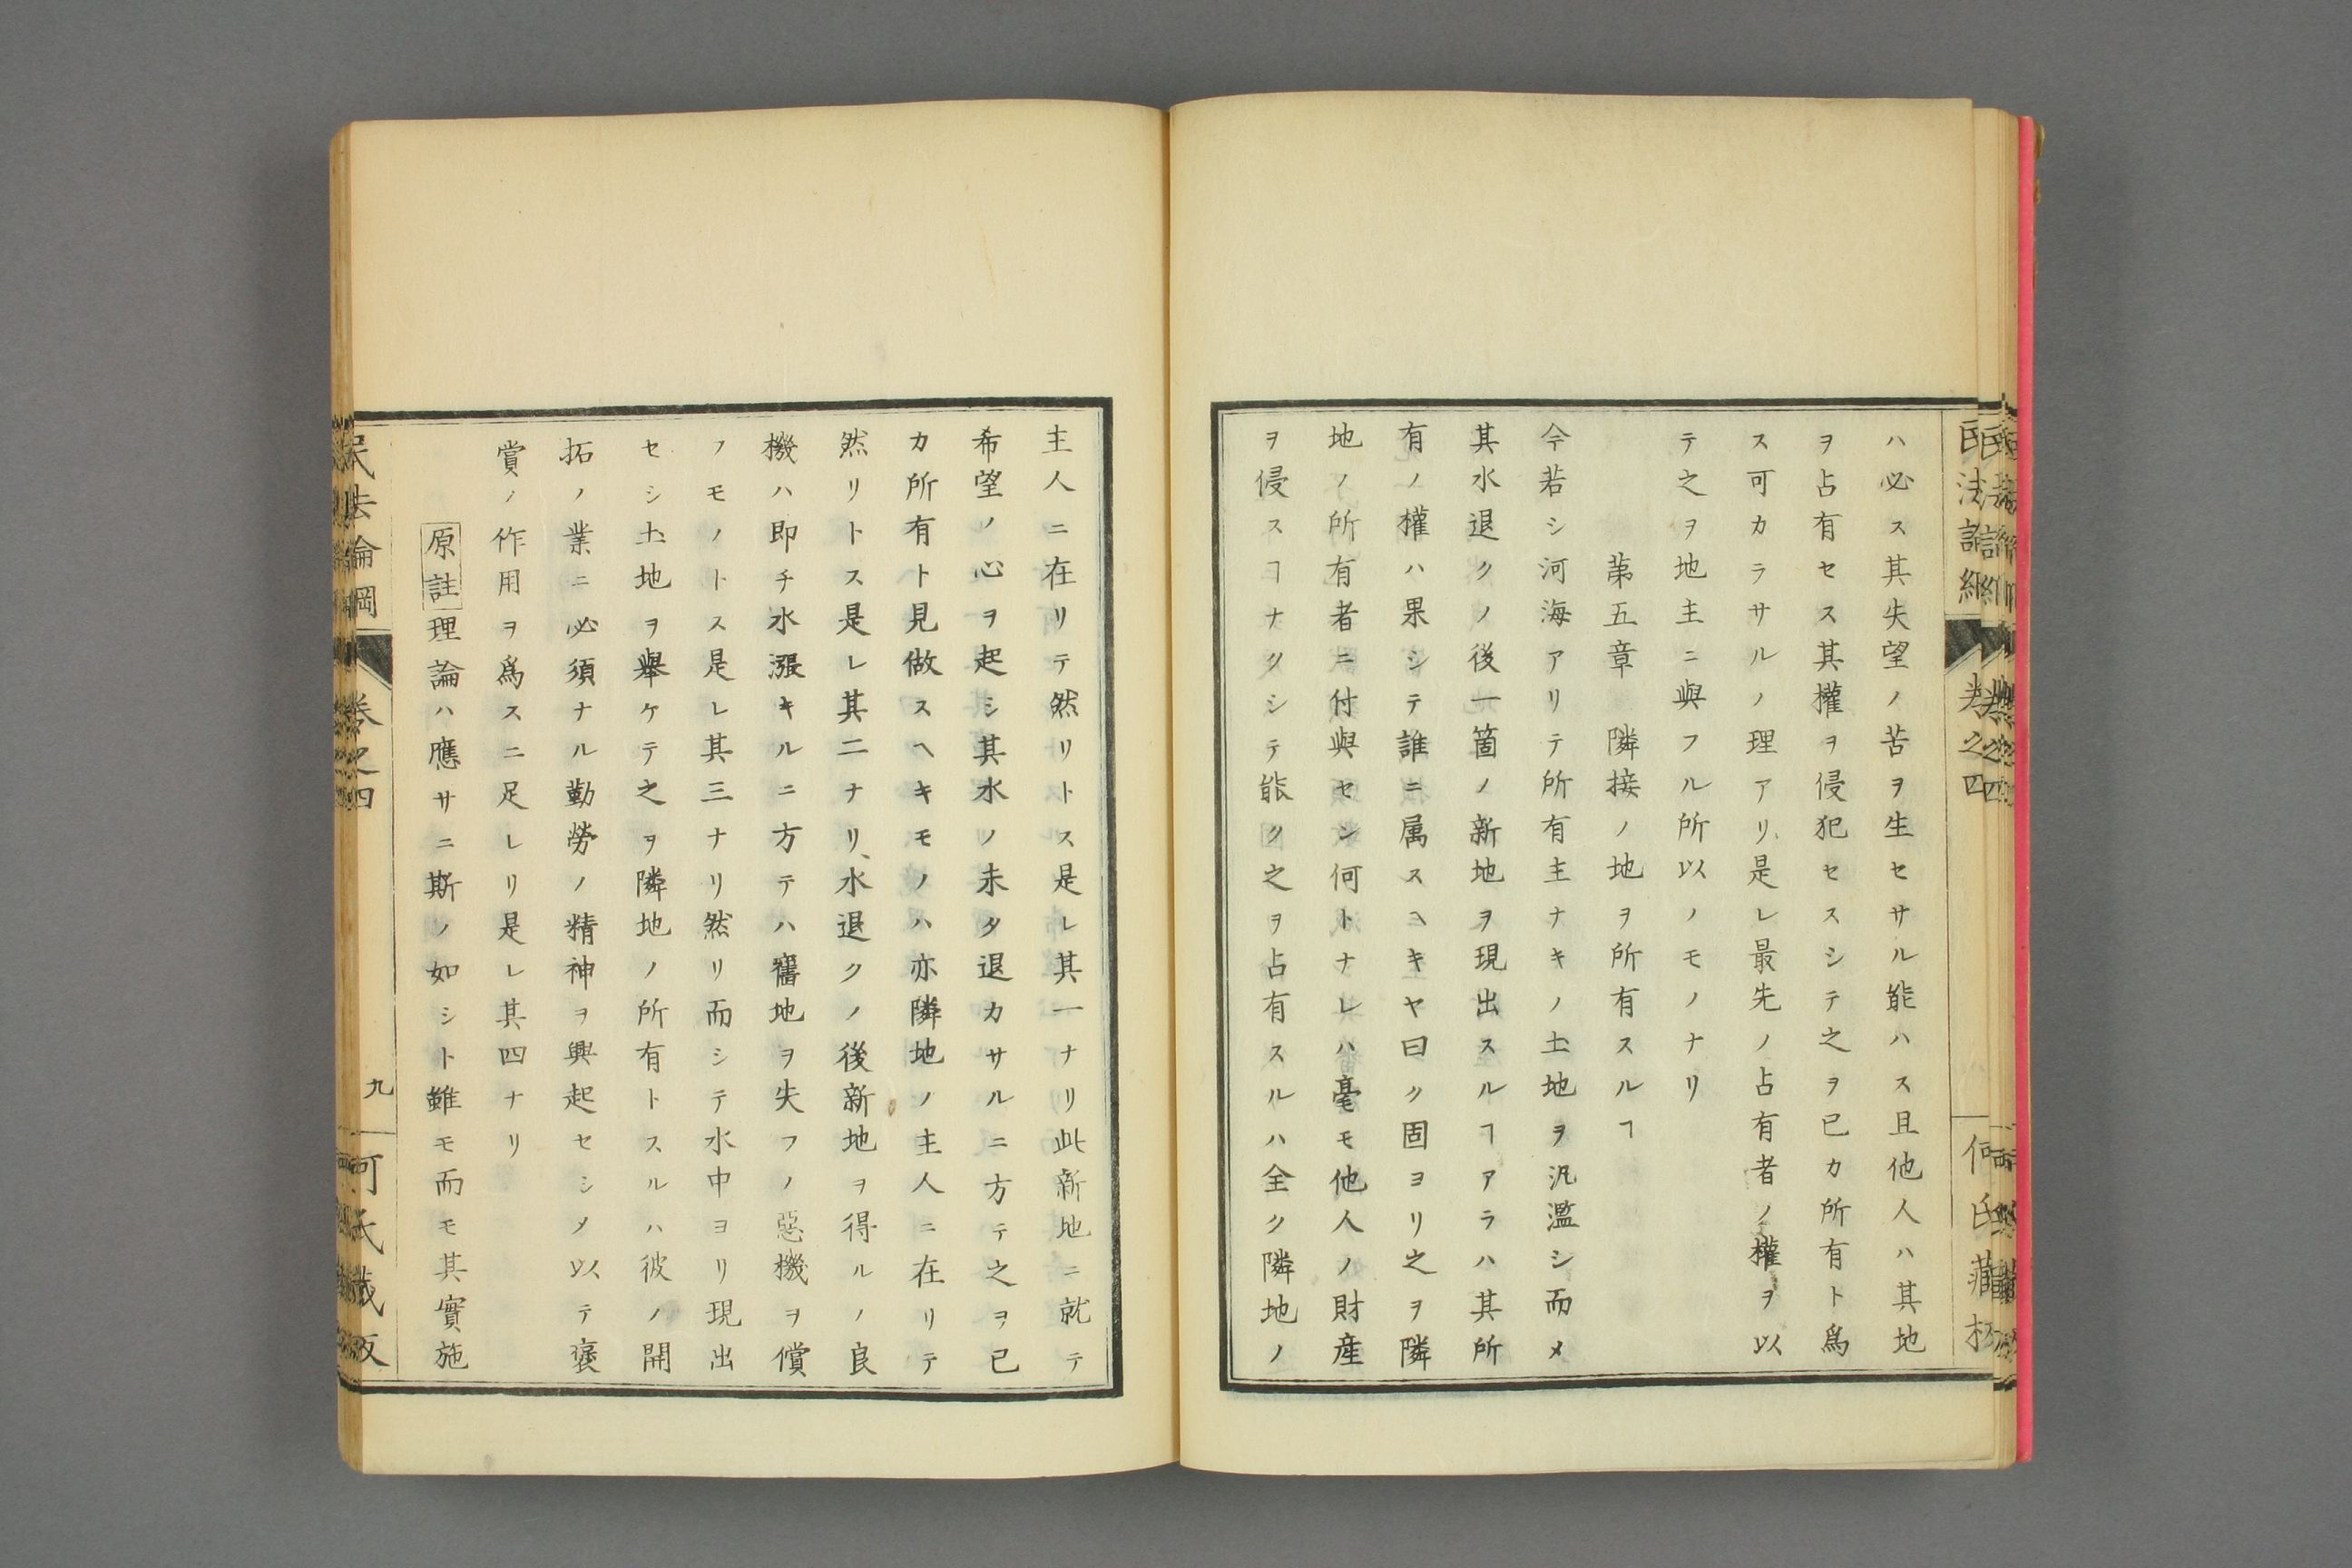 ハ必ス其失望ノ苦ヲ生セサル能ハス且他人ハ其地
ヲ占有セス其權ヲ侵犯セスシテ之ヲ已カ所有ト爲
ス可カラサルノ理アリ是レ最先ノ占有者ノ權ヲ以
テ之ヲ地主ニ與フル所以ノモノナリ
第五章　隣接ノ地ヲ所有スルヿ
今若シ河海アリテ所有主ナキノ土地ヲ汎濫シ而メ
其水退クノ後一箇ノ新地ヲ現出スルヿアラハ其所
有ノ權ハ果シテ誰ニ属スヘキヤ曰ク固ヨリ之ヲ隣
地ノ所有者ニ付與セシ何トナレハ毫モ他人ノ財産
ヲ侵スヿナクシテ能ク之ヲ占有スルハ全ク隣地ノ
主人ニ在リテ然リトス是レ其一ナリ此新地ニ就テ
希望ノ心ヲ起シ其水ノ未タ退カサルニ方テ之ヲ已
カ所有ト見做スヘキモノハ亦隣地ノ主人ニ在リテ
然リトス是レ其二ナリ、水退クノ後新地ヲ得ルノ良
機ハ即チ水漲キルニ方テハ舊地ヲ失フノ惡機ヲ償
フモノトス是レ其三ナリ然リ而シテ水中ヨリ現出
セシ土地ヲ舉ケテ之ヲ隣地ノ所有トスルハ彼ノ開
拓ノ業ニ必須ナル勤勞ノ精神ヲ興起セシメ以テ褒
賞ノ作用ヲ爲スニ足レリ是レ其四ナリ
原註理論ハ應サニ斯ノ如シト雖モ而モ其實施
民法論綱　卷之四　九　何氏藏板